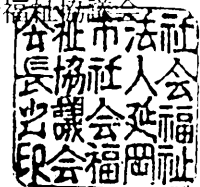 福祉協議会
社会福祉
法人延岡
市社会福
祉協議会
会長之印